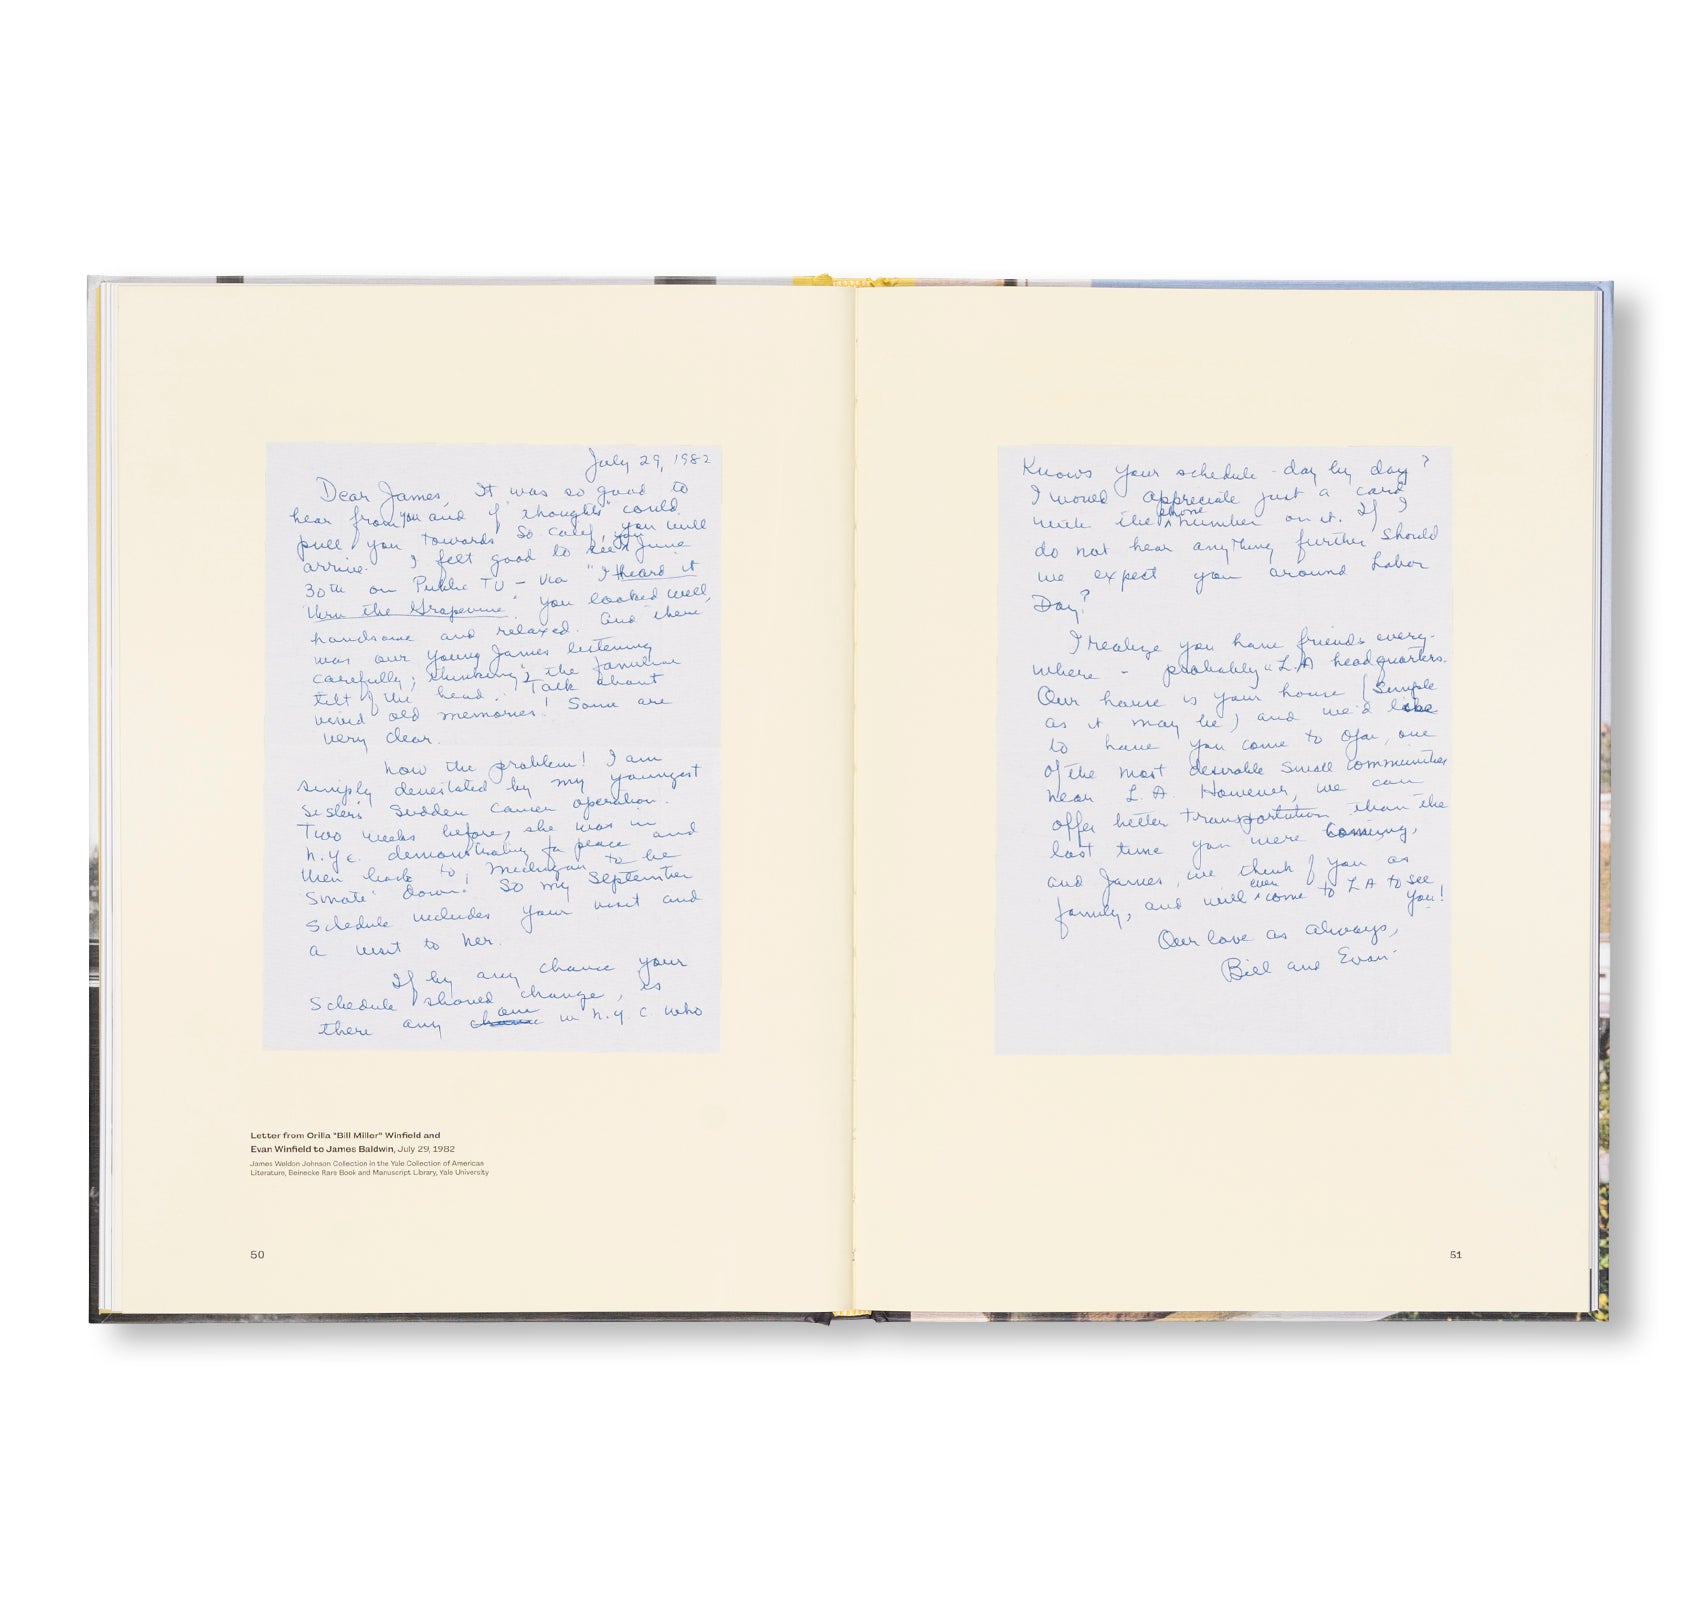 July 29, 1982
Dear James, It was so good to
hear from you and if "thoughts" could
pull you towards So Calif, you will
arrive. I felt good to see you June
30th on Public TV - via "I heard it
thru the Grapevine." You looked well,
handsome and relaxed. And there
was our young James listening
carefully; "thinking" & the familiar
tilt of the head. Talk about
vivid old memories! Some are
very clear.
Now the problem! I am
simply devestated by my youngest
sister's sudden cancer operation.
Two weeks before, she was in
N.Y.C. demonstrating for peace and
then back to Michigan to be
down! So my September
schedule includes your visit and
a visit to her.
If by any chance your
schedule should change, is
there any one in N.Y.C. who
Knows your schedule - day by day?
I would appreciate just a card
with the phone number on it. If I
do not hear anything further should
we expect you around Labor
Day?
I realize you have friends every-
where - probably "L.A headquarters.
Our house is your house (Simple
as it may be) and we'd like
to have you come to Ojai, one
of the most desirable small communities
near L.A. However, we can
offer better transportation than the
last time you were coming,
and James, we think of you as
family, and will even come to LA to see
you!
Our love as always,
Bill and Evan
Letter from Orilla "Bill Miller" Winfield and
Evan Winfield to James Baldwin, July 29, 1982
James Weldon Johnson Collection in the Yale Collection of American
Literature, Beinecke Rare Book and Manuscript Library, Yale University
50
51